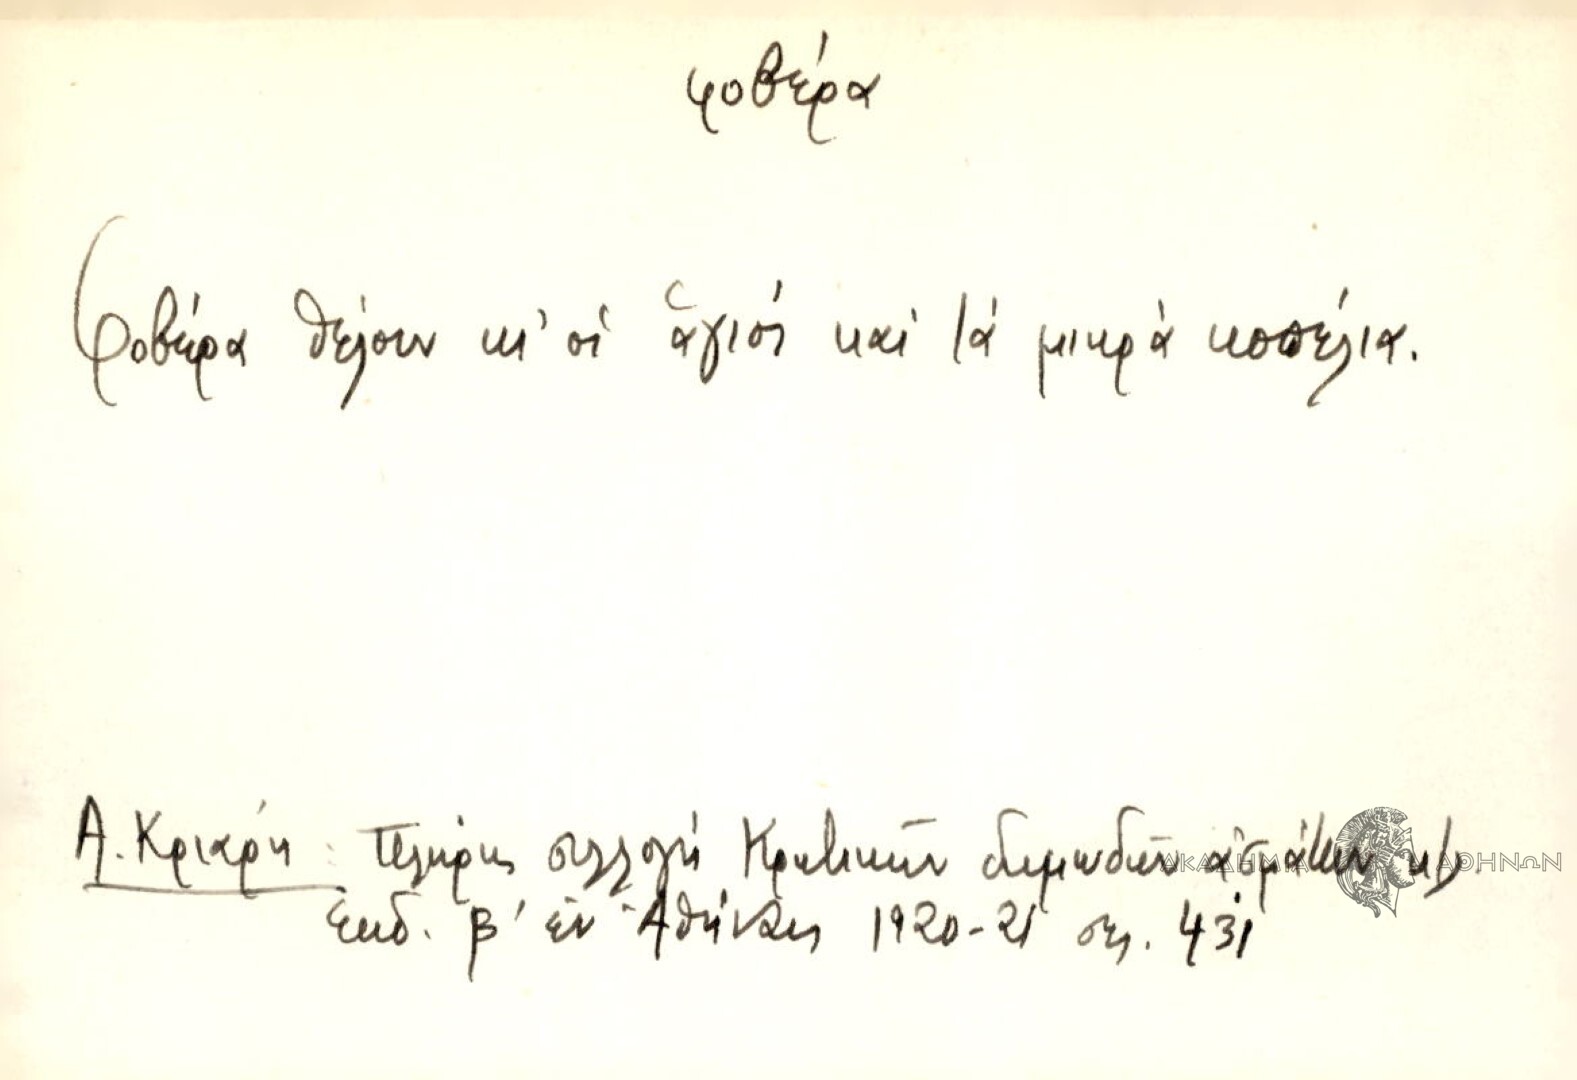 φοβέρα
Φοβέρα θέλουν κι' οἱ ἅγιοί καὶ τά μικρά κοπέλια.
Α. Κριάρη: Πλήρης συλλογή Κρητικῶν δημωδῶν ἀσμάτων κτλ
ἔκδ. β' ἐν Ἀθήναις 1920-21 σελ. 431
ΑΚΑΔΗΜΙΑ ΑΘΗΝΩΝ